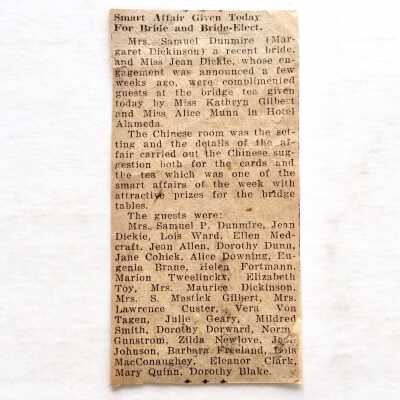 Smart Affair Given Today
For Bride and Bride-Elect.
Mrs. Samuel Dunmire (Mar-
garet Dickinson) a recent bride,
and Miss Jean Dickie, whose en-
gagement was announced a few
weeks ago, were complimented
guests at the bridge tea given
today by Miss Kathryn Gilbert
and Miss Alice Munn in Hotel
Alameda.
The Chinese room was the set-
ting and the details of the af-
fair carried out the Chinese sug-
gestion both for the cards and
the tea which was one of the
smart affairs of the week with
attractive prizes for the bridge
tables.
The guests were:
Mrs. Samuel P. Dunmire, Jean
Dickie, Lois Ward, Ellen Med-
craft, Jean Allen, Dorothy Dunn,
Jane Cohick, Alice Downing, Eu-
genia Brane, Helen Fortmann,
Marion Tweelinckx, Elizabeth
Toy, Mrs. Maurice Dickinson,
Mrs. S. Mastick Gilbert, Mrs.
Lawrence Custer, Vera Von
Tagen, Julie Geary, Mildred
Smith, Dorothy Dorward, Norm
Gunstrom, Zilda Newlove,
Johnson, Barbara Freeland, Lois
MacConaughey, Eleanor Clark,
Mary Quinn, Dorothy Blake.